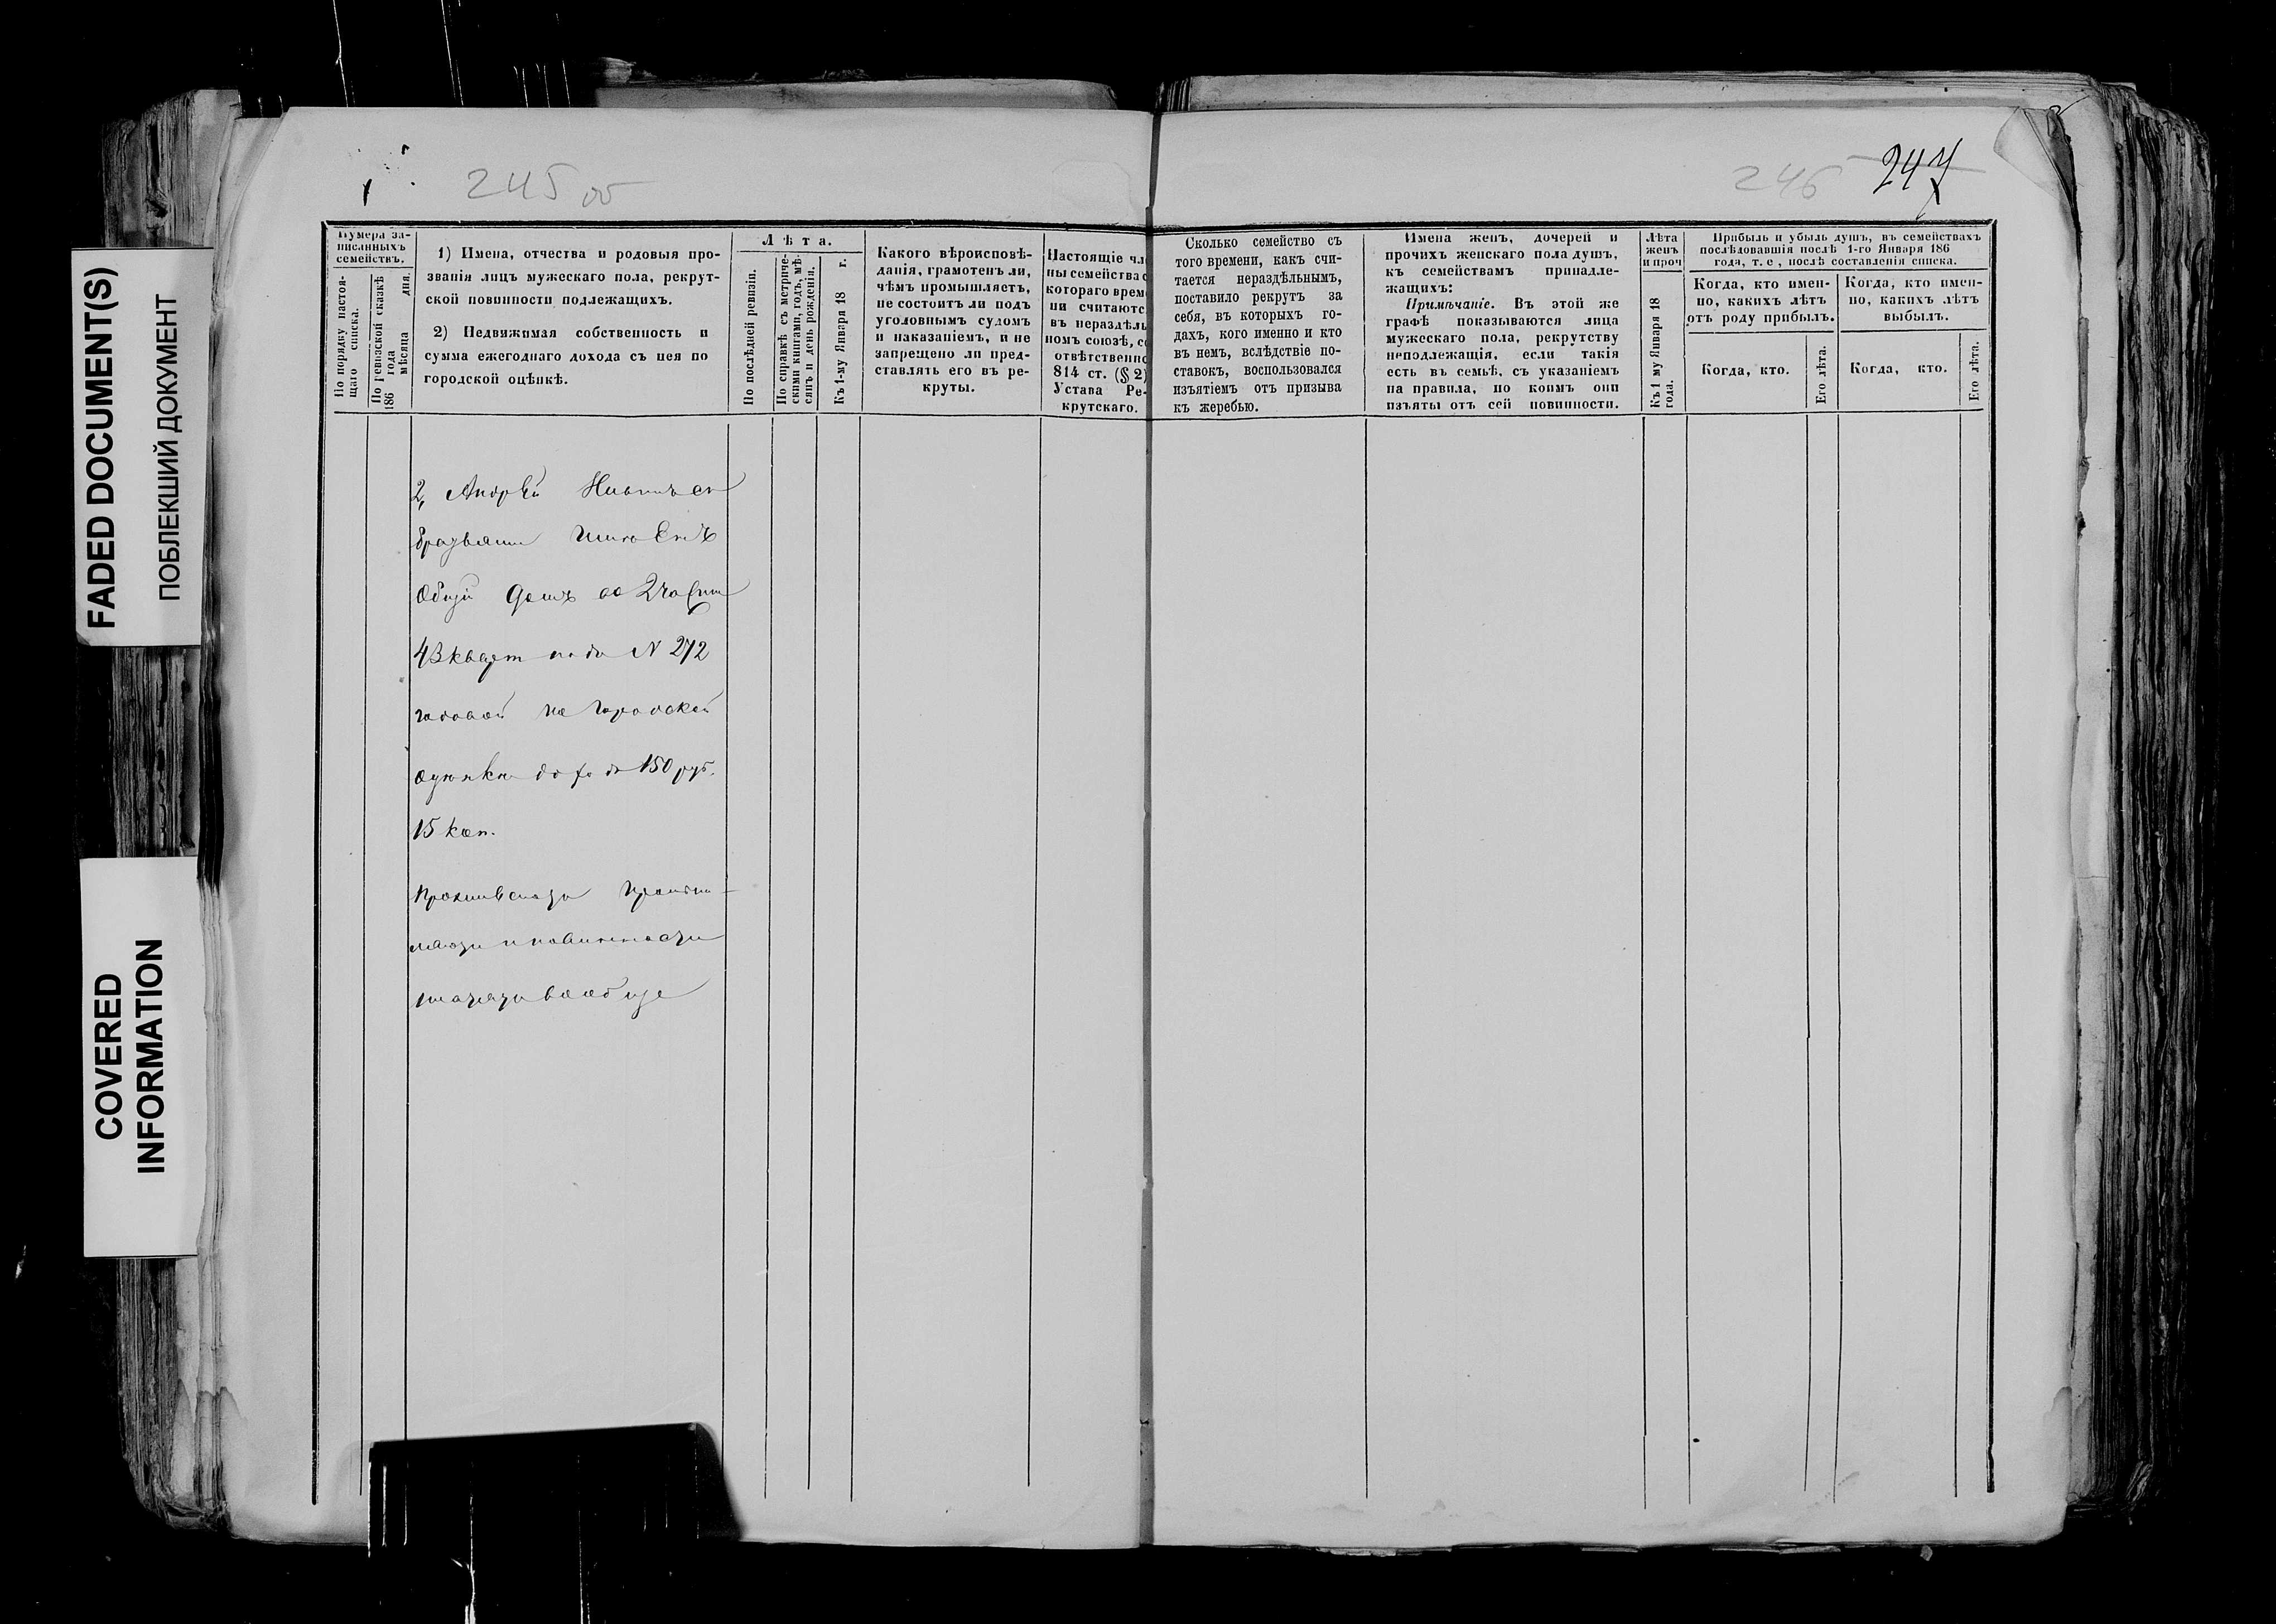 FADED DOCUMENT(S)
ПОБЛЕКШИЙ ДОКУМЕНТ
COVERED
INFORMATION
245 об
246 247
Нумера за-
писанныхъ
семействъ.
По порядку настоя-
щаго списка.
По ревизской сказкѣ
186 года
мѣсяца дня.
1) Имена, отчества и родовыя про-
званія лицъ мужескаго пола, рекрут-
ской повинности подлежащихъ.
2) Недвижимая собственность и
сумма ежегоднаго дохода съ нея по
городской оцѣнкѣ.
Лѣта.
По послѣдней ревизіи.
По справкѣ съ метриче-
скими книгами, годъ, мѣ-
сяцъ и день рожденія.
Къ 1-му Января 18 г.
Какого вѣроисповѣ-
данія, грамотенъ ли,
чѣмъ промышляетъ,
не состоитъ ли подъ
уголовнымъ судомъ
и наказаніемъ, и не
запрещено ли пред-
ставлять его въ ре-
круты.
Настоящіе чле
ны семейства с
котораго врем
ни считаютс
въ нераздѣль
номъ союзѣ, со
отвѣтственно
814 ст. (§ 2)
Устава Ре-
крутскаго.
Сколько семейство съ
того времени, какъ счи-
тается нераздѣльнымъ,
поставило рекрутъ за
себя, въ которыхъ го-
дахъ, кого именно и кто
въ немъ, вслѣдствіе по-
ставокъ, воспользовался
изъятіемъ отъ призыва
къ жеребью.
Имена женъ, дочерей и
прочихъ женскаго пола душъ,
къ семействамъ принадле-
жащихъ:
Примѣчаніе. Въ этой же
графѣ показываются лица
мужескаго пола, рекрутству
неподлежащія, если такія
есть въ семьѣ, съ указаніемъ
на правила, по коимъ они
изъяты отъ сей повинности.
Лѣта
женъ
и проч
Къ 1 му Января 18
года.
Прибыль и убыль душъ, въ семействахъ
послѣдовавшія послѣ 1-го Января 186
года, т. е , послѣ составленія списка.
Когда, кто имен-
но, какихъ лѣтъ
отъ роду прибылъ.
Когда, кто имен-
но, какихъ лѣтъ
выбылъ.
Когда, кто.
Его лѣта.
Когда, кто.
Его лѣта.
2, Андрей
Общій домъ во 2 части
43 кварт подъ N 272
годовой по городской
оцѣнкѣ доходъ 150 руб.
15 коп.
и повинности
вообще